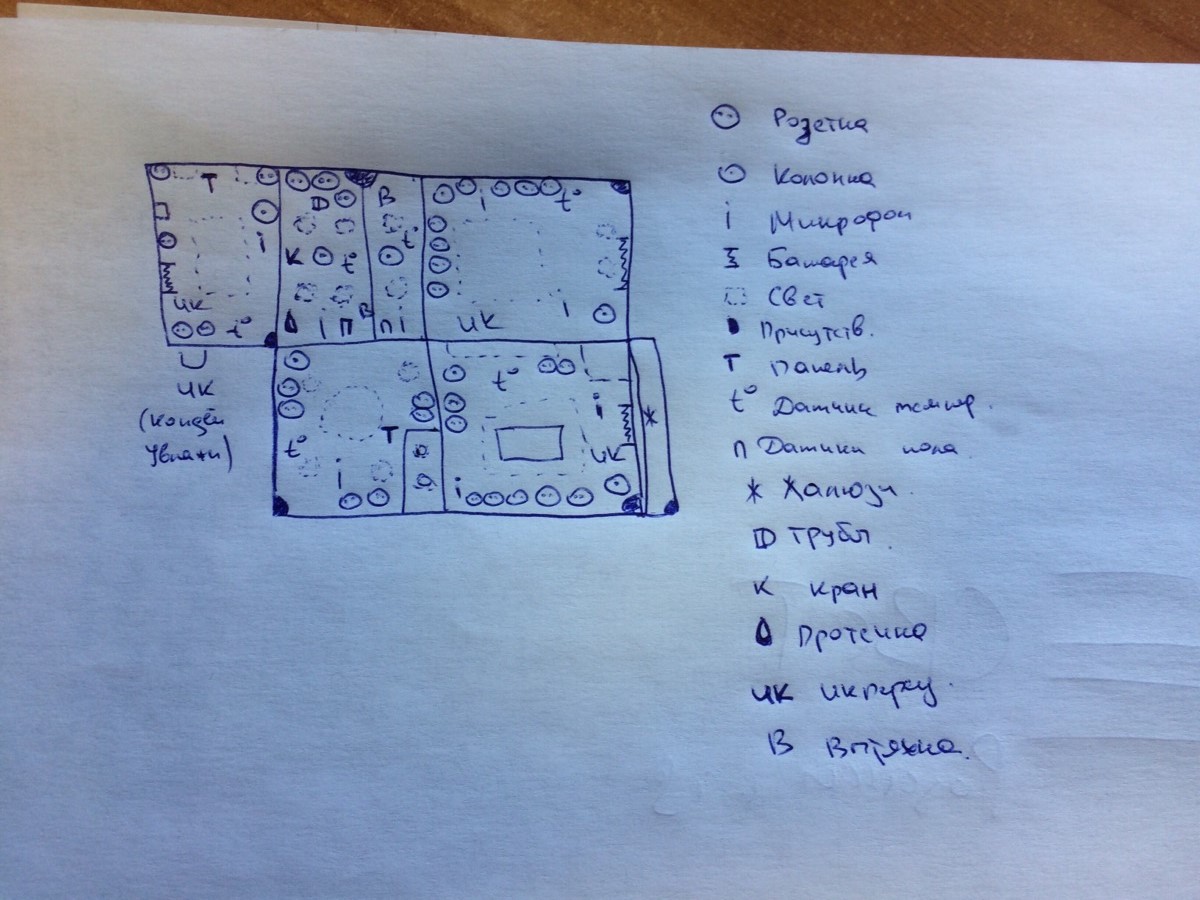 Т
В
D
t°
i
t°
К
i
t°
В
ИК
t°
i
П
П
i
ИК
i
ИК
(конден
Увлажн)
t°
Т
i
t°
i
ИК
i
Розетка
Колонка
i Микрофон
Батарея
Свет
Присутств.
Т Панель
t° Датчики темпер.
П Датчики пола
Жалюзи
D Трубл.
К Кран
Протечка
ИК ик
В Вытяжка